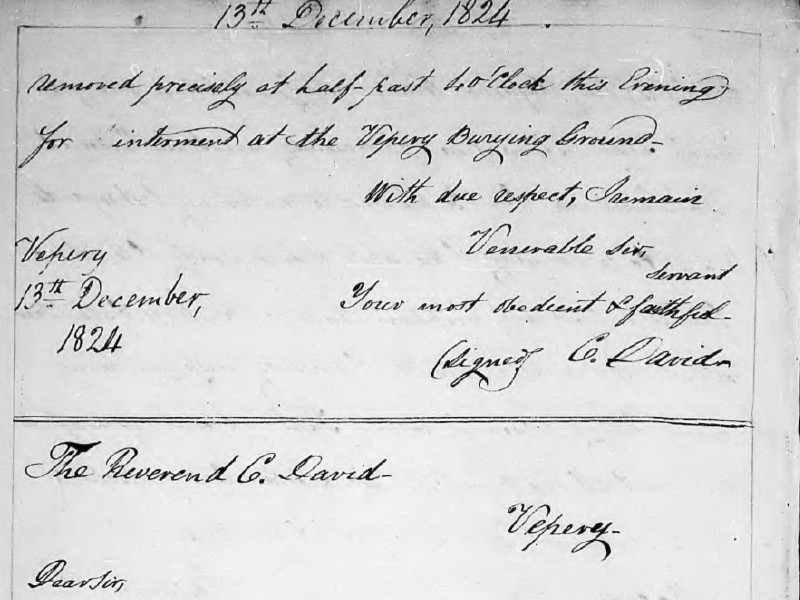 13th December, 1824
removed precisely at half-past 4 o'Clock this Evening
for interment at the Vepery Burying Ground.
With due respect, I remain
Venerable Sir,
servant
Your most obedient & faithful
(signed) C. David
Vepery
13th December,
1824
The Reverend C. David
Vepery
Dear Sir,